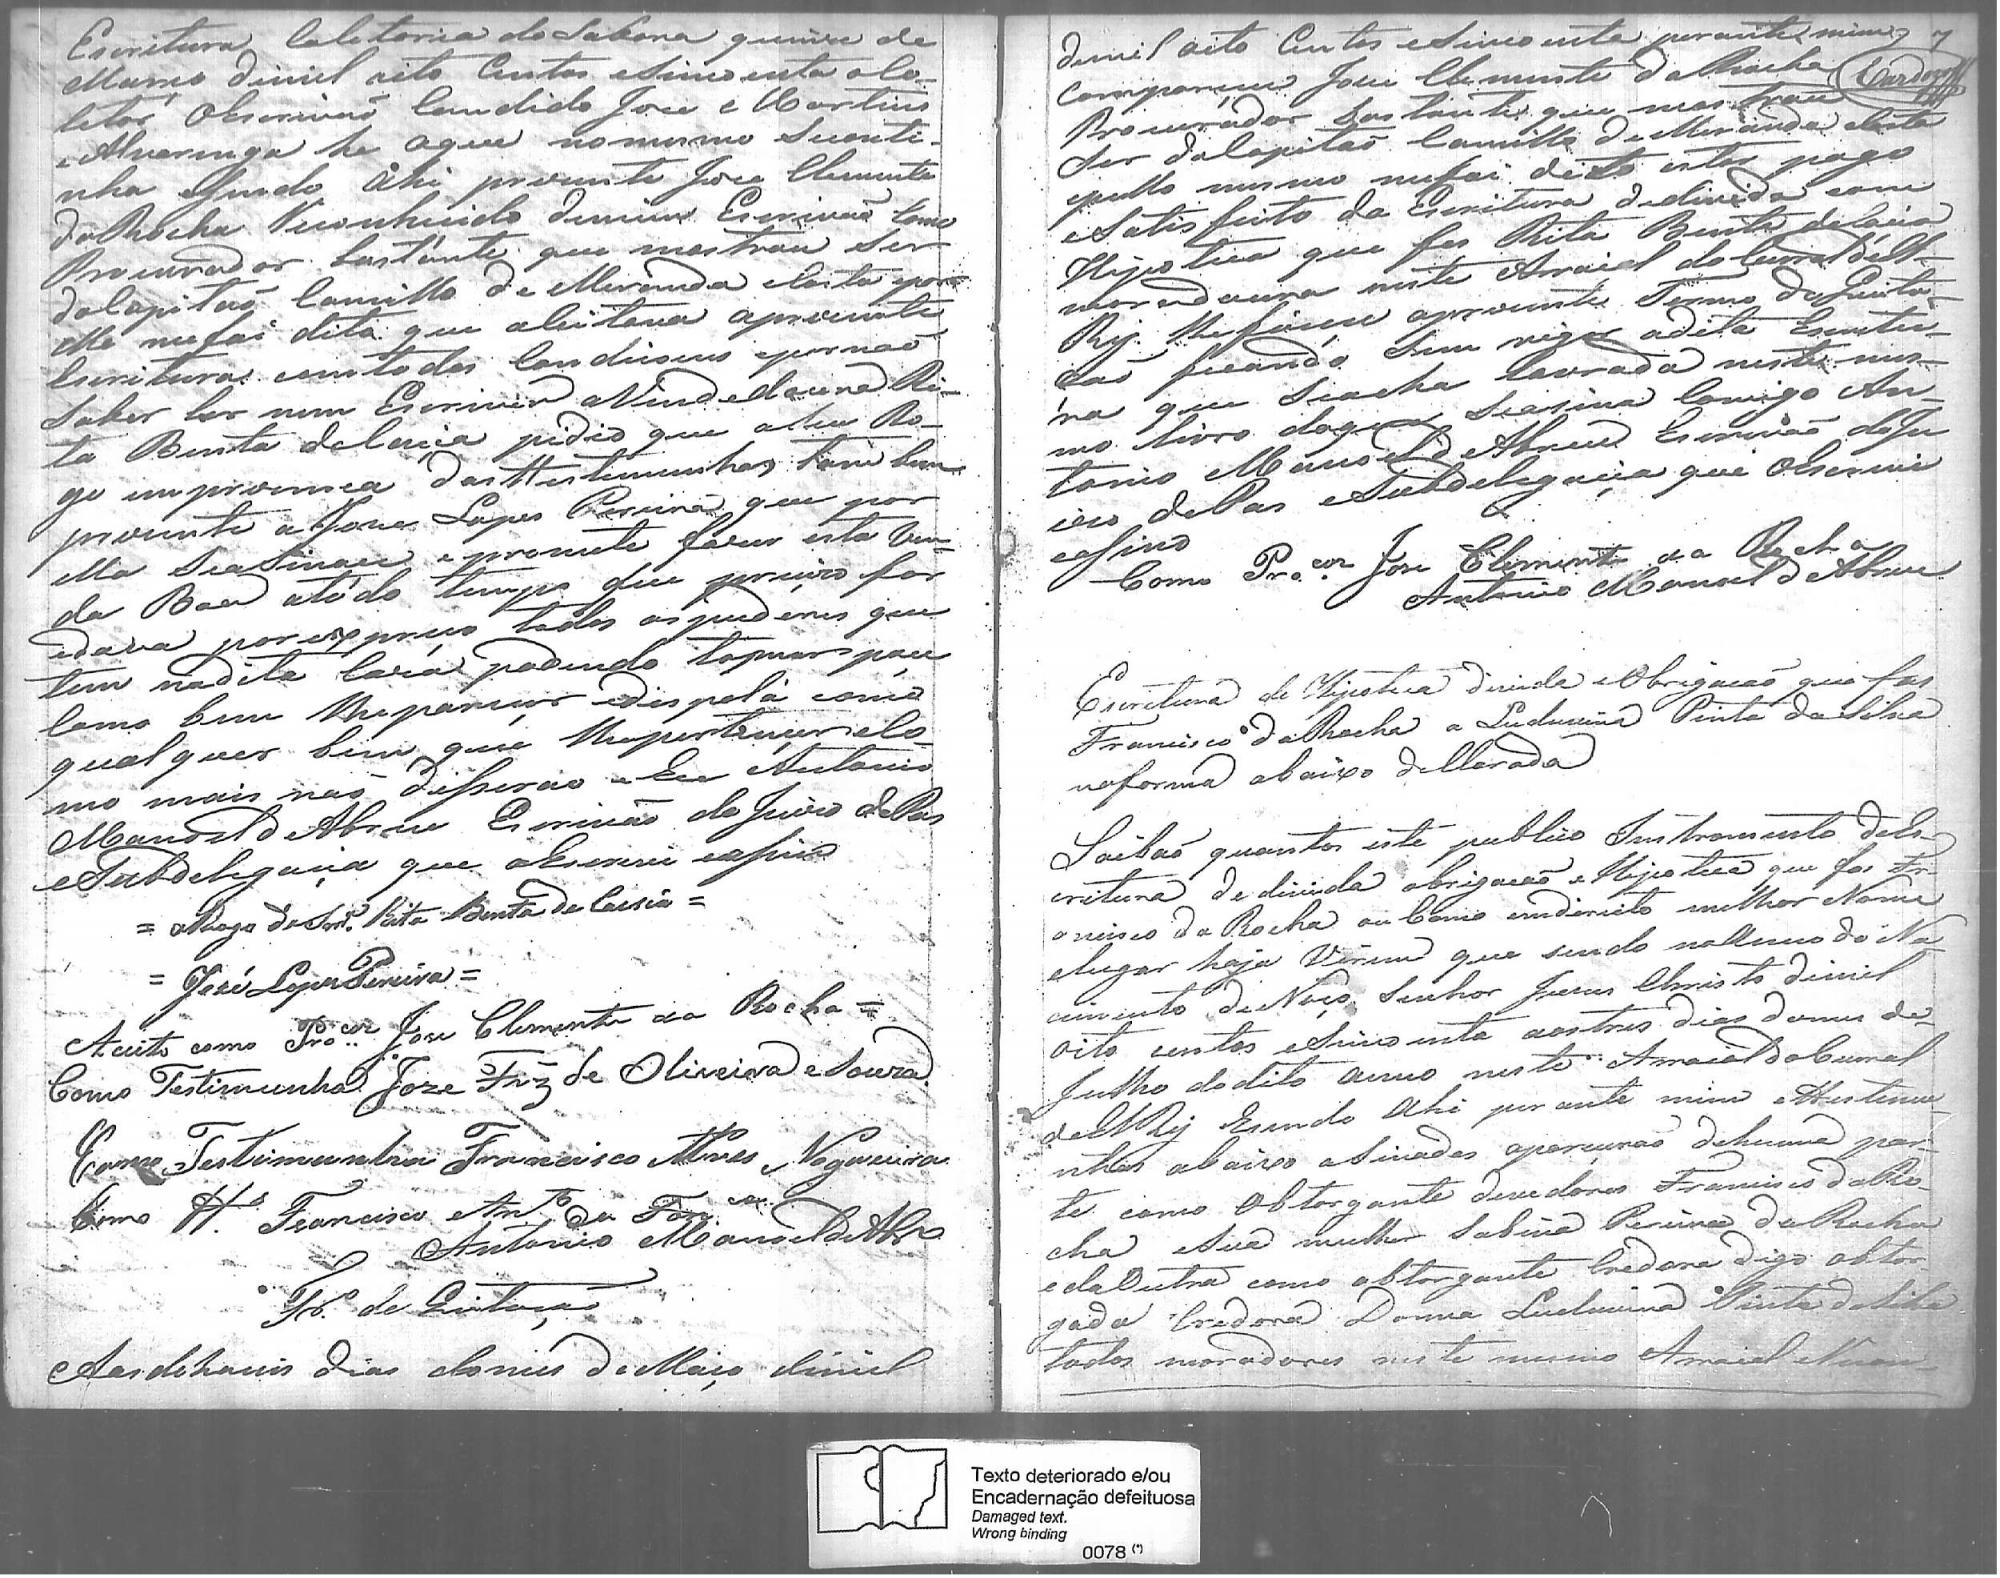 Escritura Coletoria do Sabara quinze de
Março dimil oito Centos eSincoenta o Co-
letor OEscrivaõ Candido Jose e Martins
e Alvarenga he oque nomesmo Seconti-
nha eSendo Ahi prezente Jose Clemente
daRocha Reconhecido demim Escrivaõ Como
Procurador bastante que mostrou Ser
doCapitaõ Camillo de Meranda eCosta epor
elle mefoi dito que aceitava aprezente
Escritura comtodas Condiscois epornaõ
Saber ler nem Escriver aVendedoura Ri-
ta Benta deCacia pidio que aSeu Ro-
go empresença dasttestemunhas tambem
prezente a Jose Lopes Pereira que por
ella Seasinace epromete fazer esta Ven-
da Boa atodo tempo que precizo for
edava porexpreço todos ospuderes que
tem nadita Caza podendo tomar poce
Como bem lheparecer edispola como
qualquer bem que lhepertencer eCo-
mo mais naõ disseraõ e Eu Antonio
Manoel deAbreu Escrivaõ doJuizo dePas
eSubdelegacia que oEscrevi easino
= aRogo da Snr.ª Rita Benta de Cacia =
= José Lopes Pereira =
Aceito como Pro.cor Jose Clemente da Rocha =
Como Testimunha Joze Frz de Oliveira e Souza
Como Testimunha Francisco Alves Nogueira
Como tt.ª Francisco Ant.º da Fon.ca
Antonio Manoel deAbr.º
Tr.º de Quitaçaõ
Aos dehacis dias domes deMarço dimil
dimil oito Centos eSincoenta perante mim 7
compareceu Jose Clemente daRocha Cardozo
Procurador bastante que mostrou
Ser doCapitaõ Camillo deMeranda eCosta
epello mesmo mefoi dito estar pago
eSatisfeito da Escritura dedivida com
Hipoteca que fes Rita Benta deCacia
moradoura neste Arraial doCurral delR-
Rij. lhefaçece aprezente Termo deQuita-
çaõ ficando Sem vigor adita Escritu-
ra que Seacha lavrada neste mes-
mo livro doque Seasina Comigo An-
tonio Manoel deAbreu Escrivaõ doJu
izo dePas eSubdelegacia que oEscrevi
easino
Como Pro.cor Jose Clemente da Rocha
Antonio Manoel deAbreu
Escritura de Hipoteca divida eObrigacaõ que fas
Francisco daRocha a Luduvina Pinta da Silva
naforma abaixo dellarada
Saibaõ quantos este publico Instromento deEs-
critura dedivida obrigacaõ e Hipoteca que fas Fr-
ancisco da Rocha ou Como emdireito melhor Nome
elugar haja Virem que sendo noAnno do Na-
cimento deNoço Senhor Jezus Christo dimil
oito centos eSincoenta aostres dias domes de
Julho dodito anno neste Arraial doCurral
delRij Esendo Ahi perante mim ettestemu-
nhas abaixo aSinadas aparceraõ dehuma par-
te como Obtorgante devedores Francisco daRo-
cha eSua mulher Sabina Pereira da Rocha
edaOutra como obtorgante Credora digo obtor-
gada Credora Donna Luduvina Pinta daSilva
todos moradores neste mesmo Arraial
Texto deteriorado e/ou
Encadernação defeituosa
Damaged text.
Wrong binding
0078 (*)